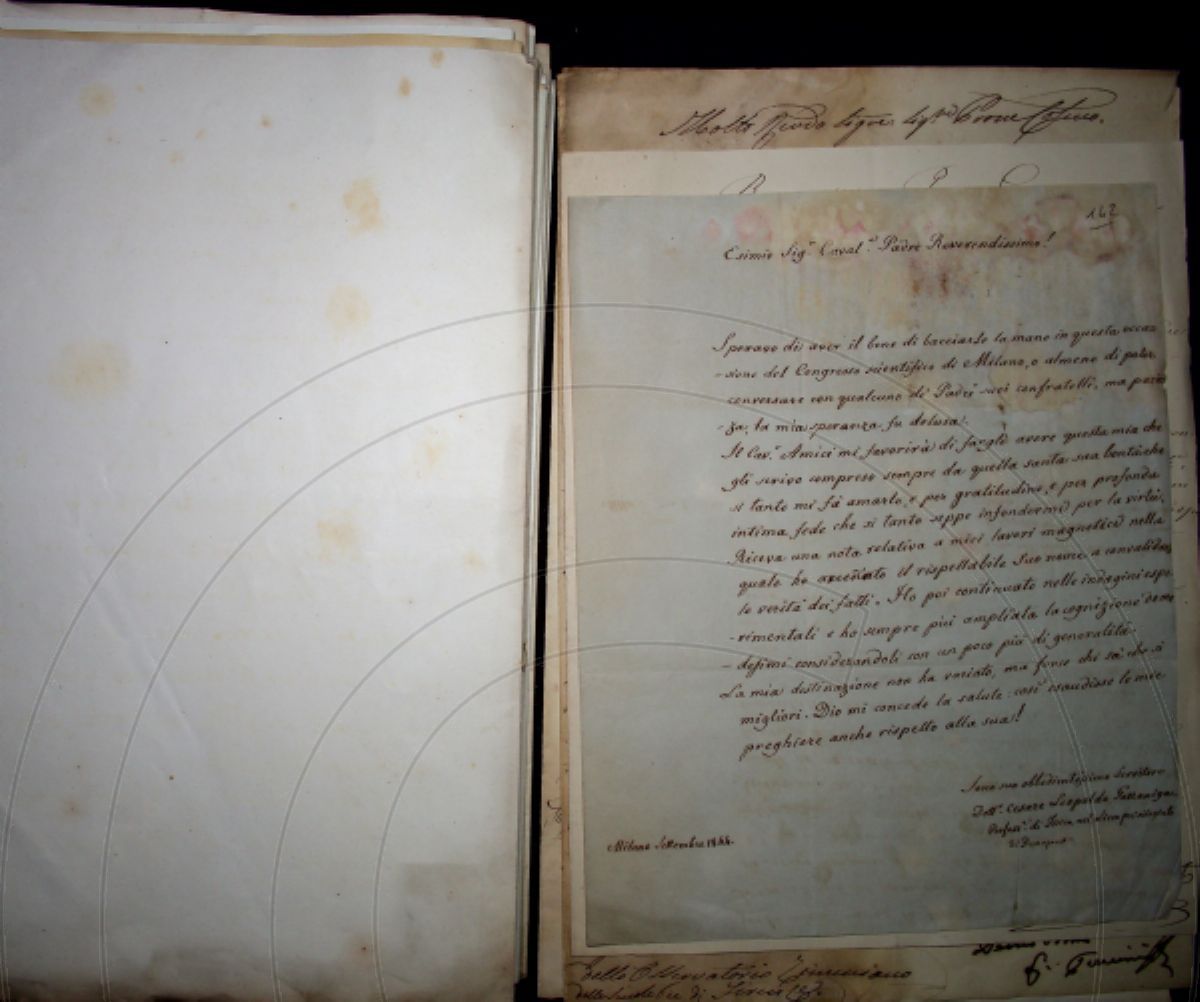 Molto Rındo
142
Esimio Sig.r Caval.re Padre Reverendissimo!
Speravo di aver il bene di bacciarLe la mano in questa occa-
-sione del Congresso scientifico di Milano, o almeno di poter
conversare con qualcuno de' Padri suoi confratelli, ma pazien
-za, la mia speranza fu delusa.
Il Cav.r Amici mi favorirà di fargli avere questa mia che
gli scrivo compreso sempre da quella santa sua bontà che
sì tanto mi fà amarlo, e per gratitudine, e per profonda
intima fede che sì tanto seppe infondermi per la virtù.
Riceva una nota relativa a miei lavori magnetici nella
quale ho accennato il rispettabile Suo nome a convalidar
le verità dei fatti. Ho poi continuato nelle indagini espe
-rimentali e ho sempre più ampliata la cognizione de me
-desimi considerandoli con un poco più di generalità.
La mia destinazione non ha variato, ma forse chi sà che si
migliori. Dio mi concede la salute: così esaudisse le mie
preghiere anche rispetto alla sua!
suo obbligatissimo Servitore
Dott.r Cesare Leopoldo
Profess.r di Fisica nel Liceo
Milano Settembre 1844.
Dello Osservatorio Ximeniano
delle Scuole Pie di